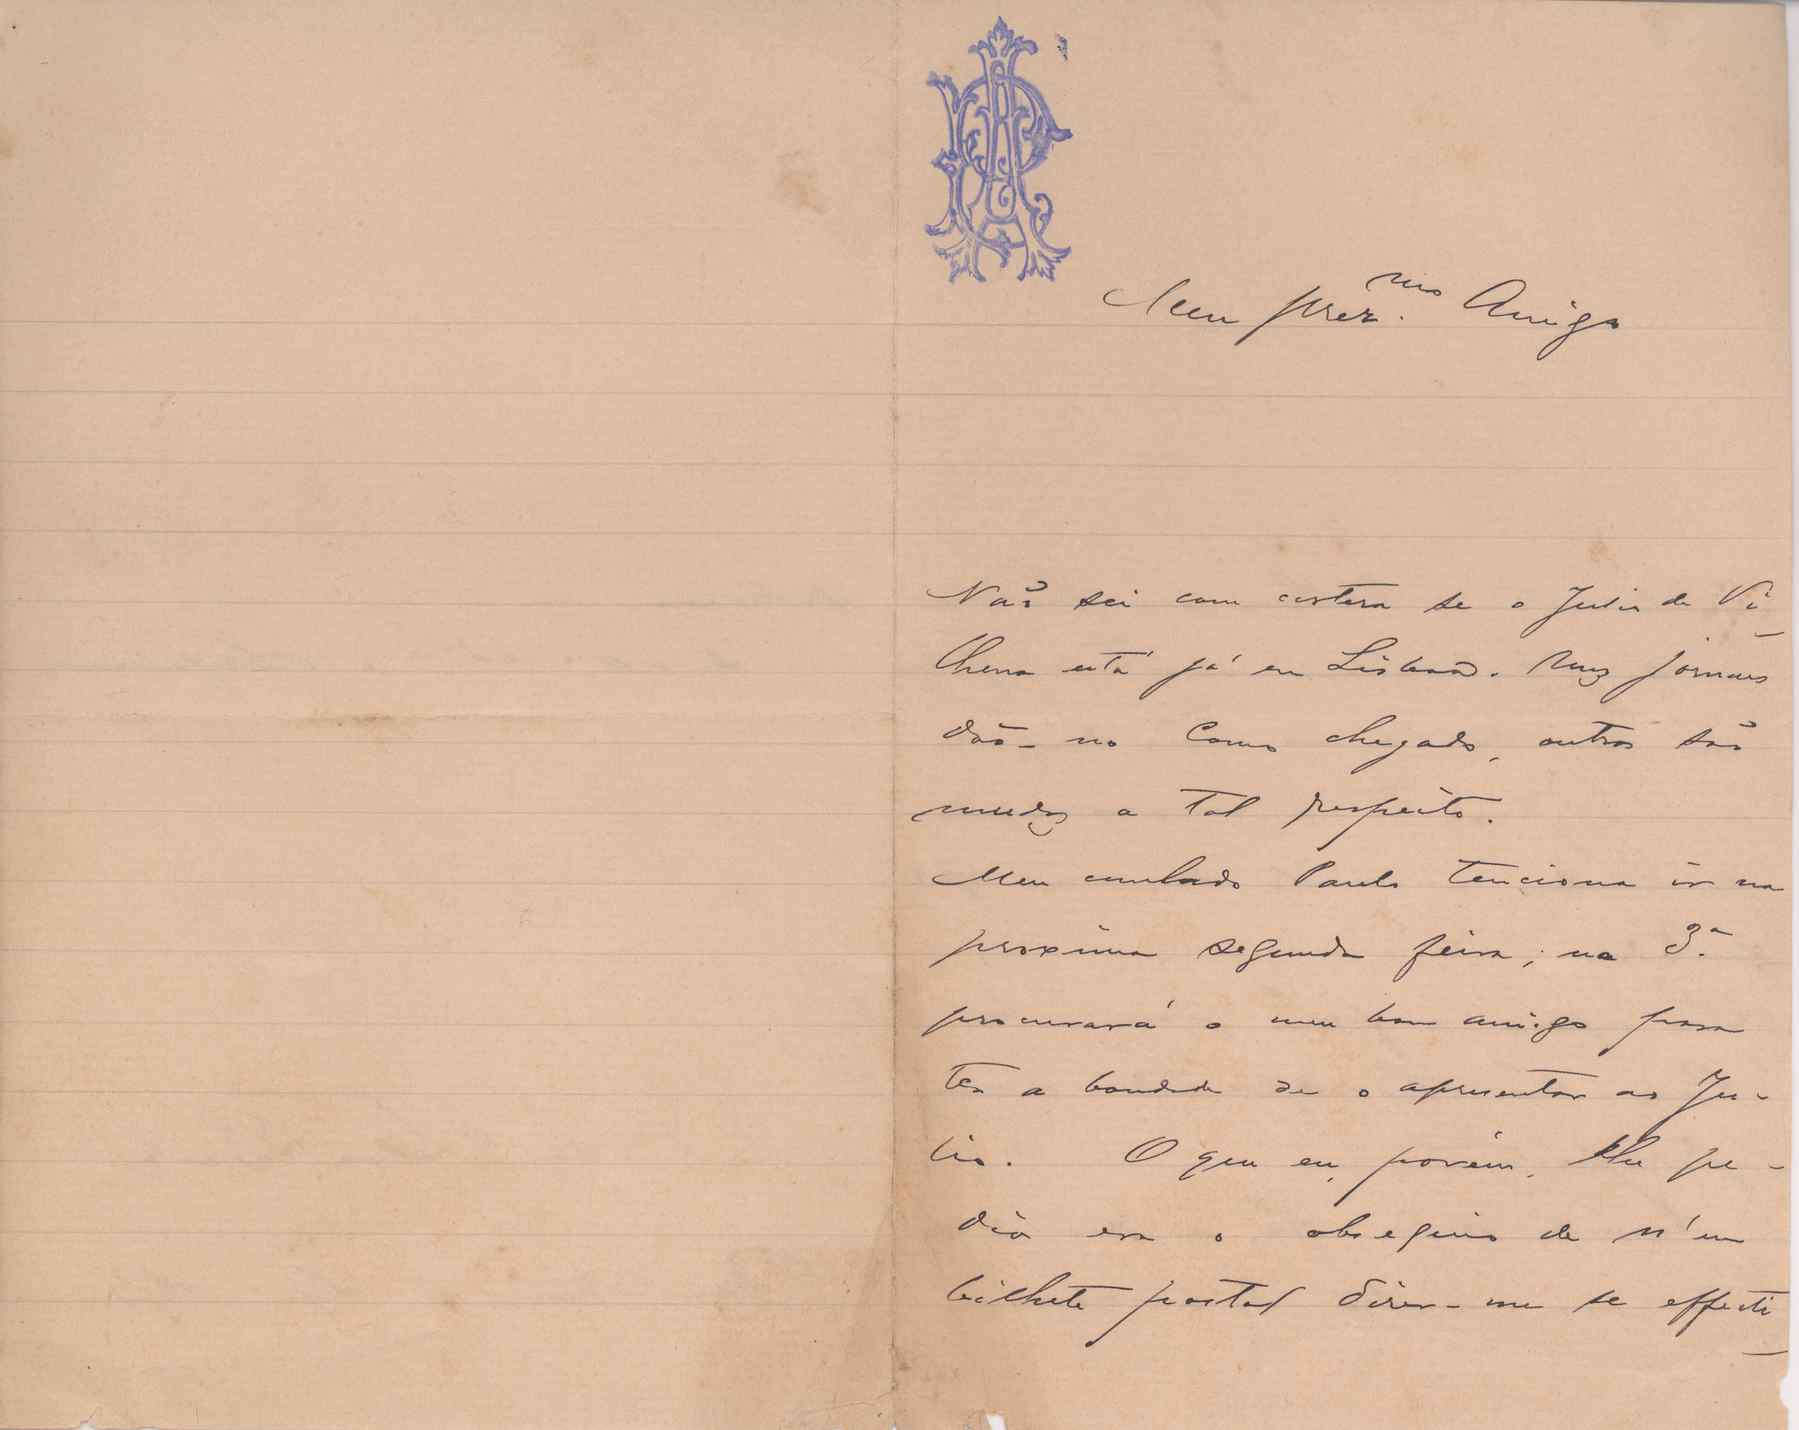 Meu prez.mo Amigo
Não sei com certeza se o Julio de Vi-
lhena está já em Lisboa. Uns jornaes
dão-no como chegado, outros são
mudos a tal respeito.
Meu cunhado Paulo tenciona ir na
proxima segunda feira; na 3.ª
procurará o meu bom amigo para
ter a bondade de o apresentar ao Ju-
lio. O que eu, porém, lhe pe-
dia era o obsequio de n'um
bilhete postal dizer-me se effecti-